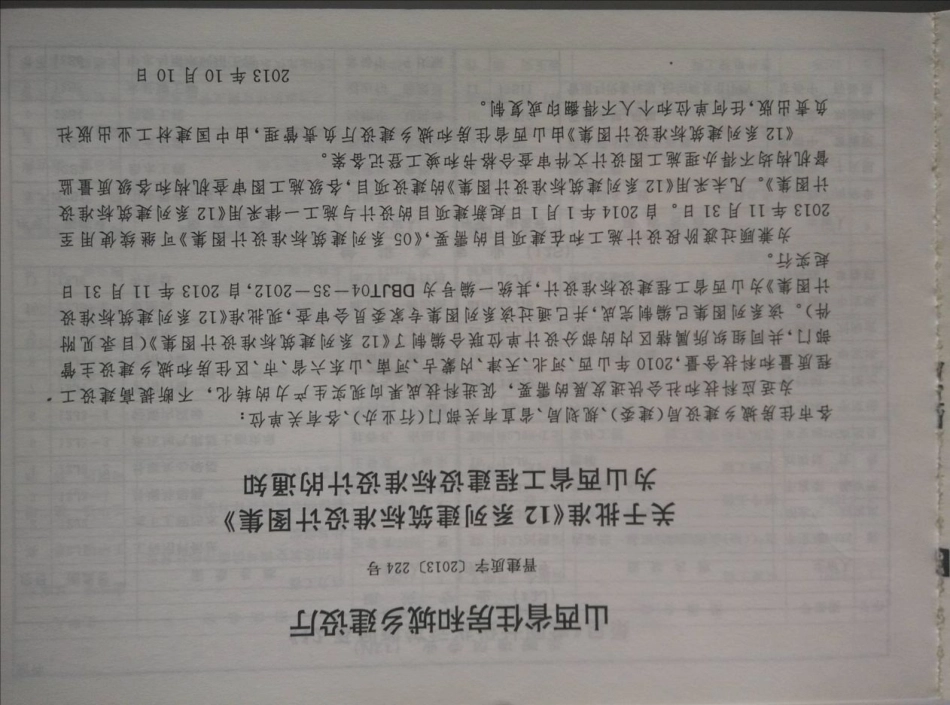 山西省住房和城乡建设厅
晋建质字〔2013〕224号
关于批准《12系列建筑标准设计图集》
为山西省工程建设标准设计的通知
各市住房城乡建设局(建委)、规划局、省直有关部门(行业办)、各有关单位:
为适应科技和社会快速发展的需要，促进科技成果向现实生产力的转化，不断提高建设工
程质量和科技含量,2010年山西、河北、天津、内蒙古、河南、山东六省、市、区住房和城乡建设主管
部门,共同组织所属辖区内的部分设计单位联合编制了《12系列建筑标准设计图集》(目录见附
件)。该系列图集已编制完成,并已通过该系列图集专家委员会审查,现批准《12系列建筑标准设
计图集》为山西省工程建设标准设计,其统一编号为DBJT04—35—2012,自2013年11月31日
起实行。
为兼顾过渡阶段设计施工和在建项目的需要,《05系列建筑标准设计图集》可继续使用至
2013年11月31日。自2014年1月1日起新建项目的设计与施工一律采用《12系列建筑标准设
计图集》。凡未采用《12系列建筑标准设计图集》的建设项目,各级施工图审查机构和各级质量监
督机构均不得办理施工图设计文件审查合格书和竣工登记备案。
《12系列建筑标准设计图集》由山西省住房和城乡建设厅负责管理,由中国建材工业出版社
负责出版,任何单位和个人不得翻印或复制。
2013年10月10日